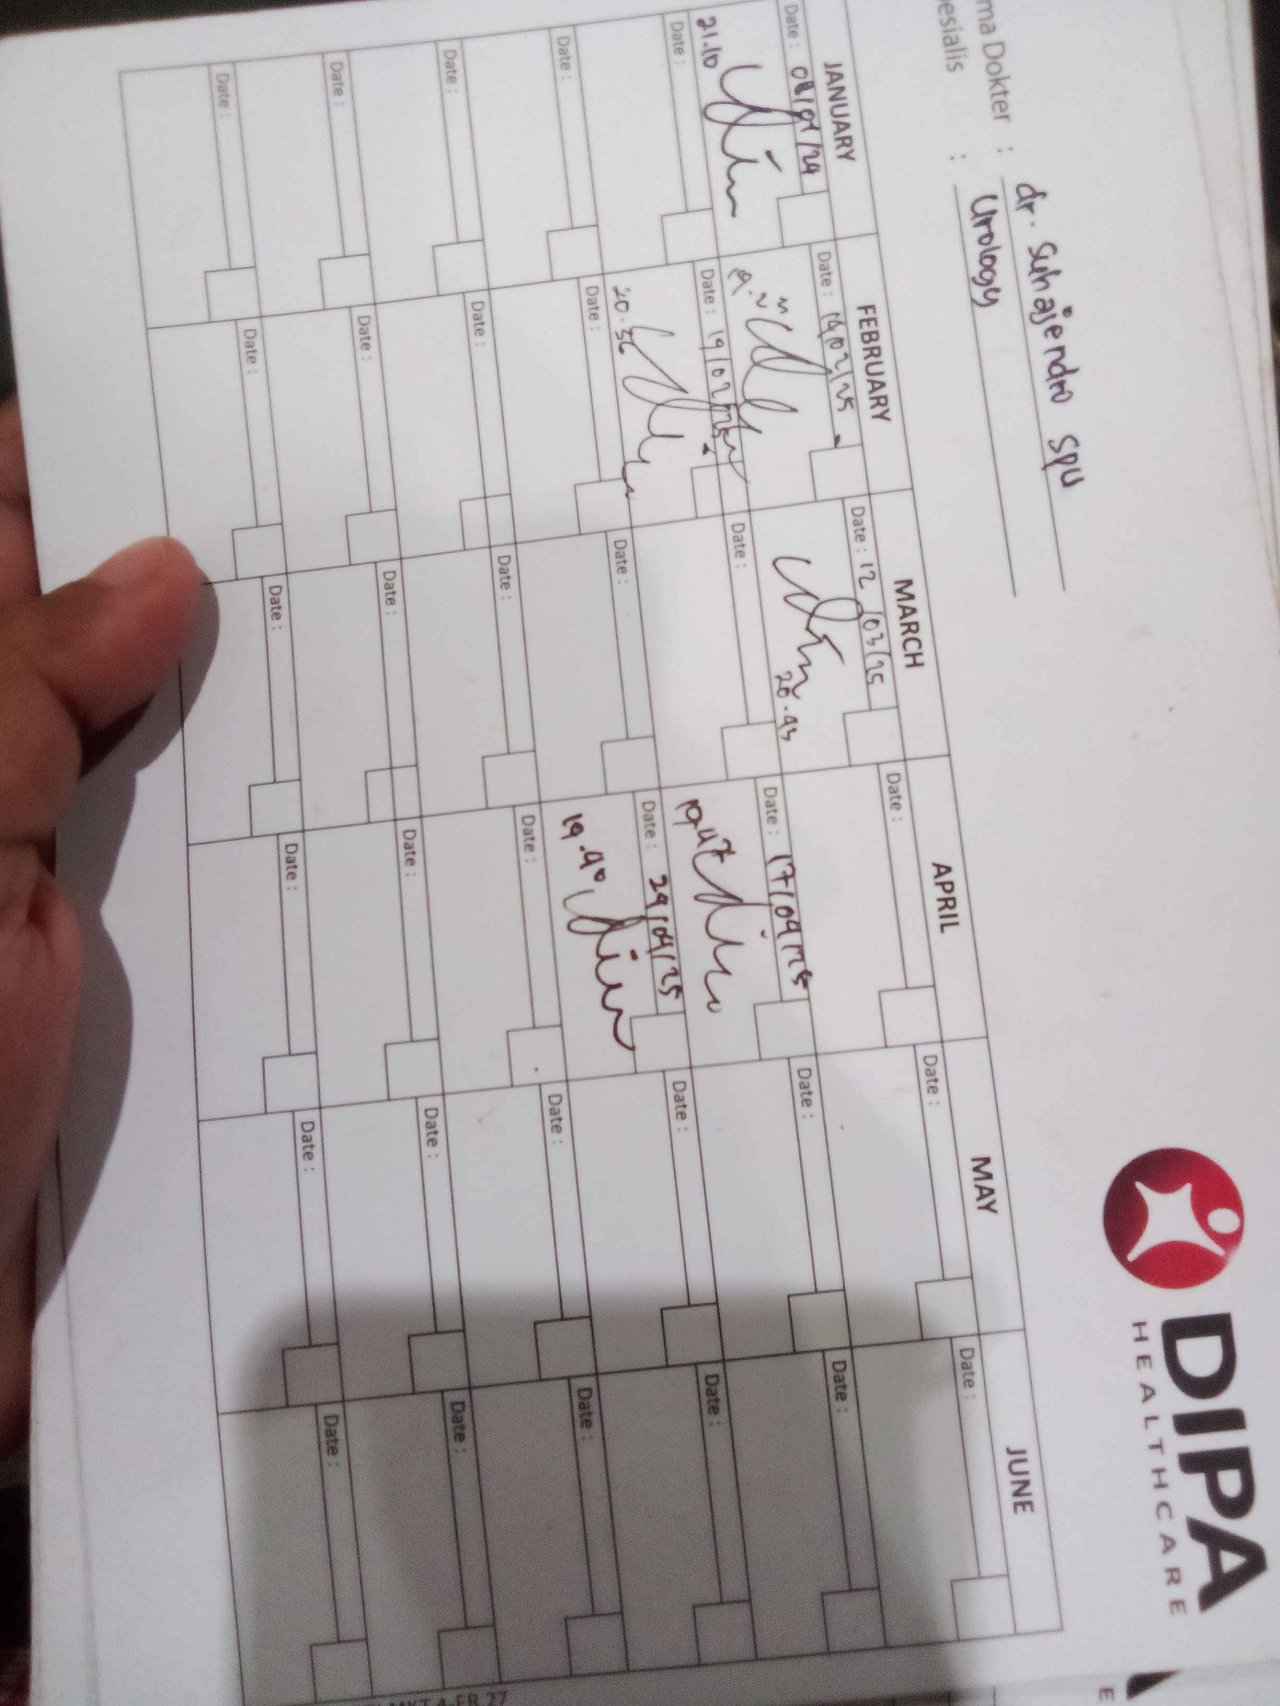 DIPA
HEALTHCARE
ma Dokter : dr. Suhajendro SpU
esialis : Urology
JANUARY FEBRUARY MARCH APRIL MAY JUNE
Date : 08/01/24 Date : 14/02/25 Date : 12/03/25 Date : Date : Date :
21.10 20.43
Date : Date : 19/02/25 Date : Date : 17/04/25 Date : Date :
20.36 19.47
Date : Date : Date : Date : 24/04/25 Date : Date :
19.40
Date : Date : Date : Date : Date : Date :
Date : Date : Date : Date : Date : Date :
Date : Date : Date : Date : Date : Date :